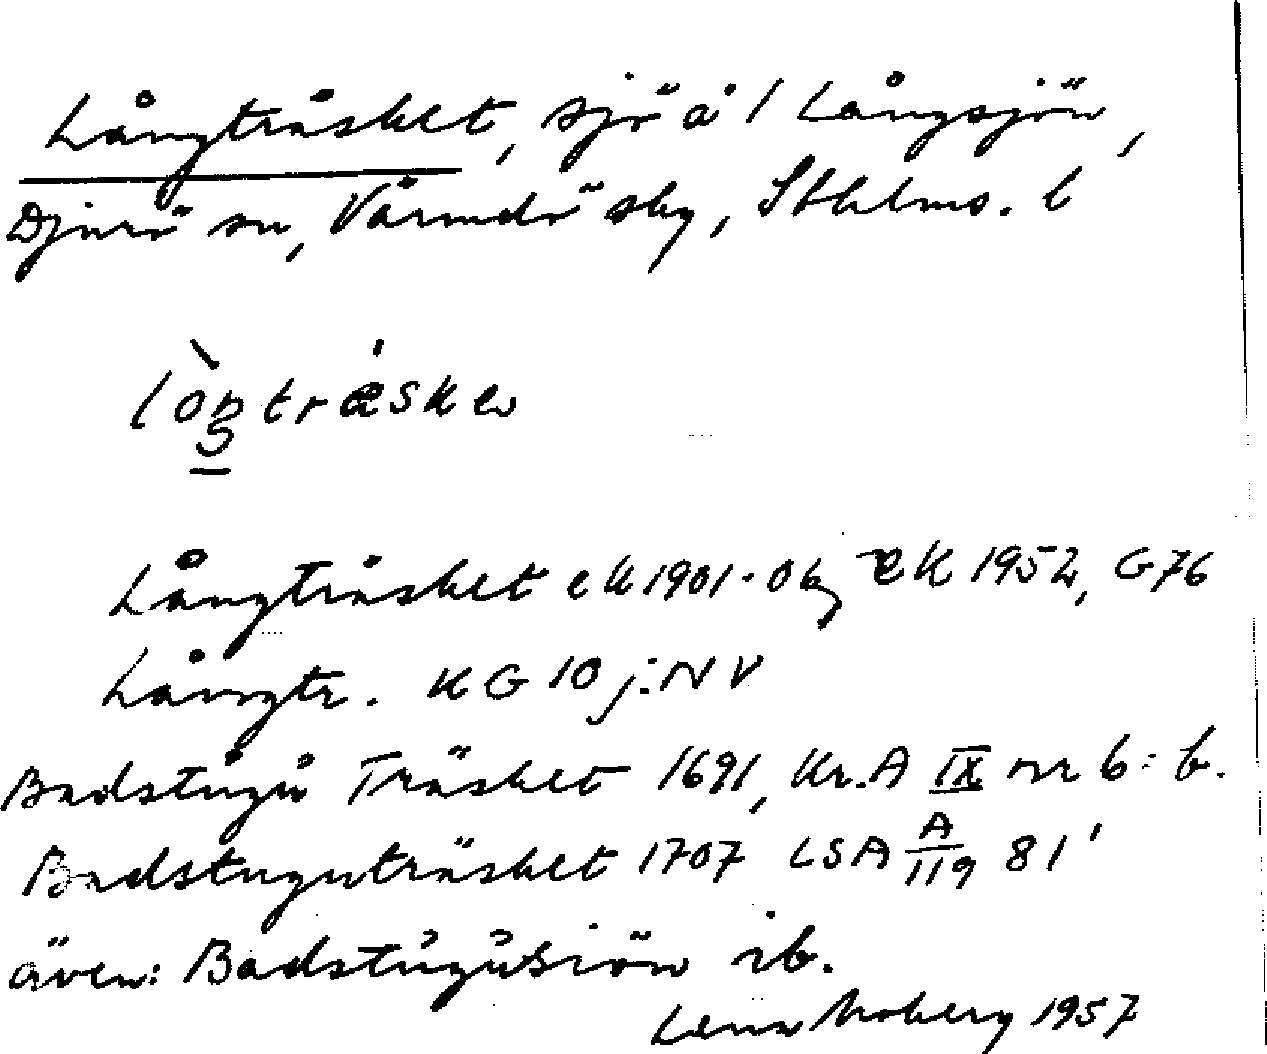 Långträsket, sjö å l Långsjön,
Djurö sn, Värmdö sbg, Sthlms. l
lòŋträ́skə
Långträsket ek 1901-06, ek 1952, G76
Långtr. KG 10 j:NV
Badstugu Träsket 1691, Kr.A IX nr 6:b.
Badstuguträsket 1707 LSA A/119 81'
även: Badstugusiön ib.
Lena Moberg 1957